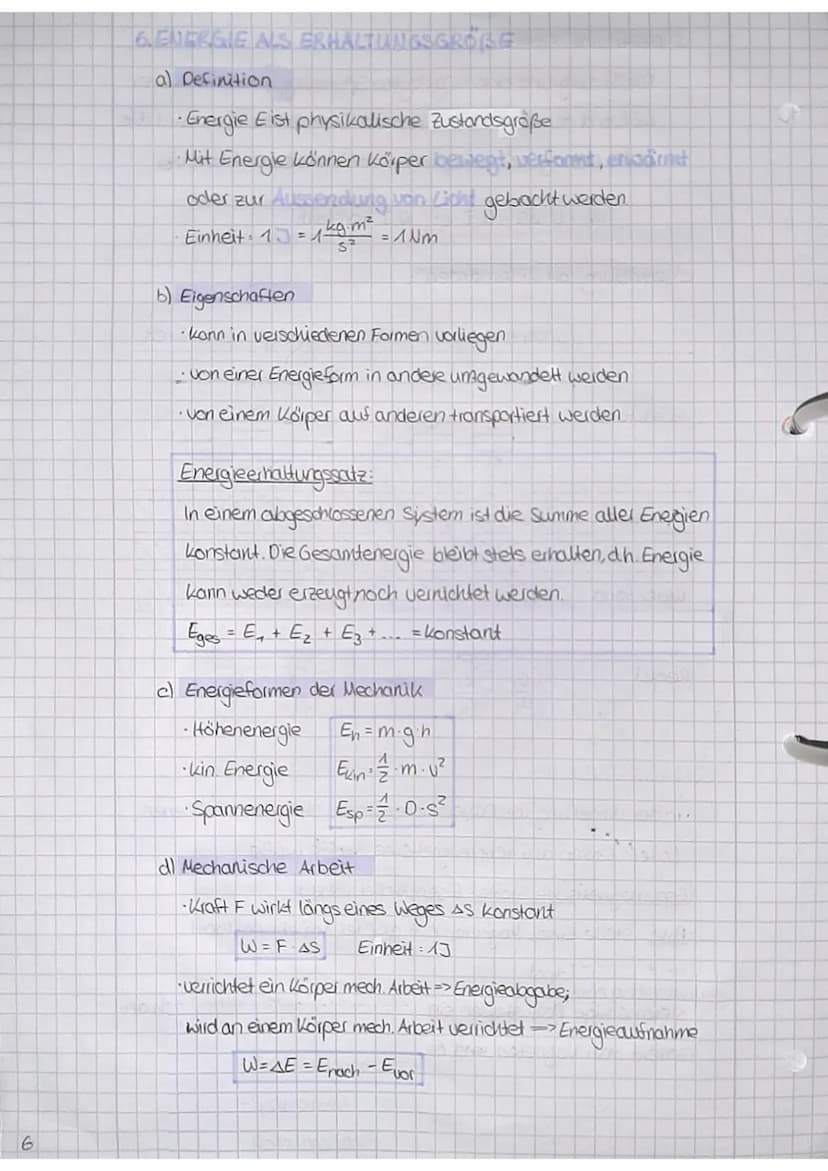 6. ENERGIE ALS ERHALTUNGSGRÖßE
a) Definition
· Energie E ist physikalische Zustandsgröße
· Mit Energie können Körper bewegt, verformt, erwärmt
oder zur Aussendung von Licht gebacht werden
· Einheit: 1J = 1 kg·m²/s² = 1Nm
b) Eigenschaften
· kann in verschiedenen Formen vorliegen
· von einer Energieform in andere umgewandelt werden
· von einem Körper auf anderen transportiert werden
Energieerhaltungssatz:
In einem abgeschlossenen System ist die Summe aller Energien
konstant. Die Gesamtenergie bleibt stets erhalten, d.h. Energie
kann weder erzeugt noch vernichtet werden.
E_ges = E_1 + E_2 + E_3 + ... = konstant
c) Energieformen der Mechanik
· Höhenenergie E_h = m·g·h
· kin. Energie E_kin = 1/2 · m · v²
· Spannenergie E_sp = 1/2 · D · s²
d) Mechanische Arbeit
· Kraft F wirkt längs eines Weges Δs konstant
W = F · Δs Einheit: 1J
· verrichtet ein Körper mech. Arbeit => Energieabgabe;
wird an einem Körper mech. Arbeit verrichtet => Energieaufnahme
W = ΔE = E_nach - E_vor
6